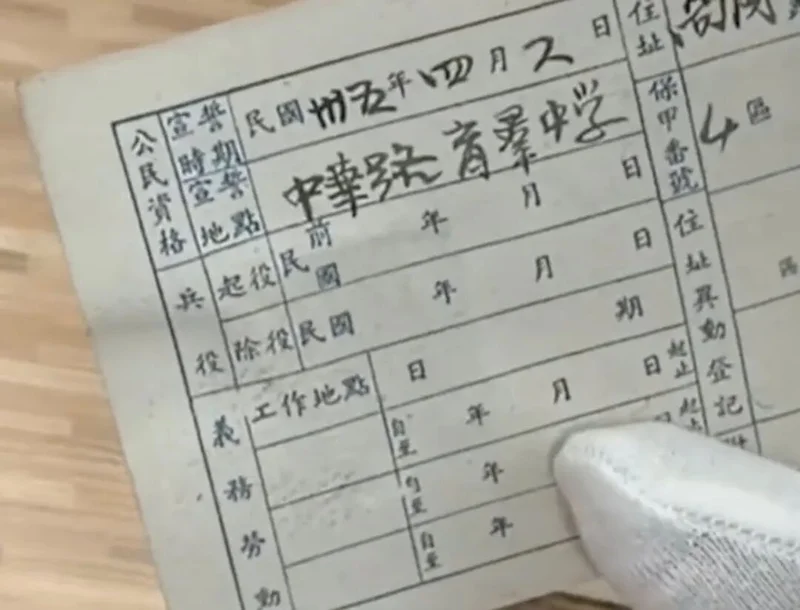 公民資格
宣誓時期
民國卅五年四月 日
宣誓地點
中華路育群中学
兵役
起役
民前國 年 月 日
除役
民國 年 月 日
期
義務勞動
工作地點
日
自至 年 月 日起止
自至 年
自至 年
住址
保甲番號
4區
住址異動登記
區